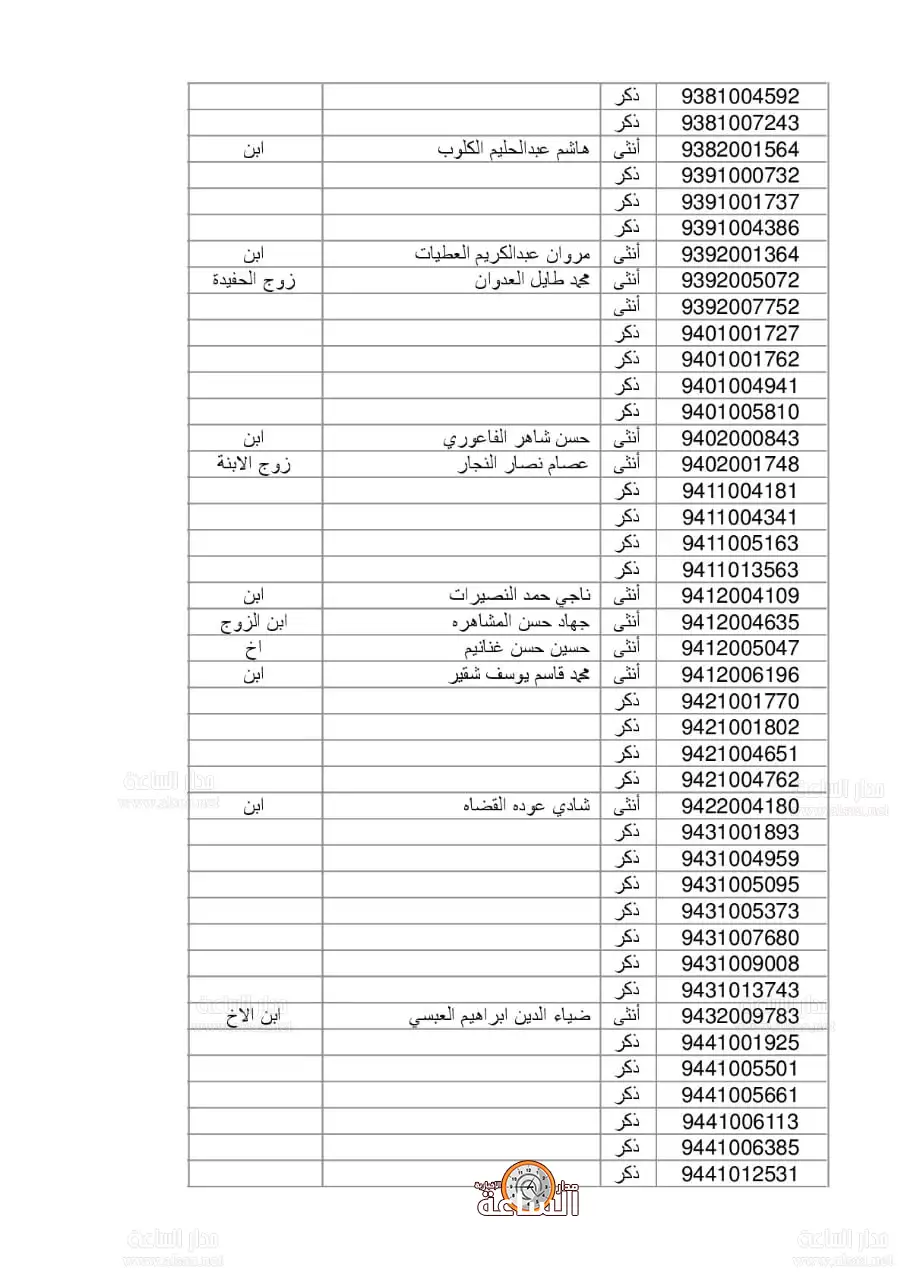 9381004592 ذكر
9381007243 ذكر
9382001564 أنثى هاشم عبدالحليم الكلوب ابن
9391000732 ذكر
9391001737 ذكر
9391004386 ذكر
9392001364 أنثى مروان عبدالكريم العطيات ابن
9392005072 أنثى محمد طايل العدوان زوج الحفيدة
9392007752 أنثى
9401001727 ذكر
9401001762 ذكر
9401004941 ذكر
9401005810 ذكر
9402000843 أنثى حسن شاهر الفاعوري ابن
9402001748 أنثى عصام نصار النجار زوج الابنة
9411004181 ذكر
9411004341 ذكر
9411005163 ذكر
9411013563 ذكر
9412004109 أنثى ناجي حمد النصيرات ابن
9412004635 أنثى جهاد حسن المشاهره ابن الزوج
9412005047 أنثى حسين حسن غنانيم اخ
9412006196 أنثى محمد قاسم يوسف شقير ابن
9421001770 ذكر
9421001802 ذكر
9421004651 ذكر
9421004762 ذكر
9422004180 أنثى شادي عوده القضاه ابن
9431001893 ذكر
9431004959 ذكر
9431005095 ذكر
9431005373 ذكر
9431007680 ذكر
9431009008 ذكر
9431013743 ذكر
9432009783 أنثى ضياء الدين ابراهيم العبسي ابن الاخ
9441001925 ذكر
9441005501 ذكر
9441005661 ذكر
9441006113 ذكر
9441006385 ذكر
9441012531 ذكر
مدار الساعة الإخبارية